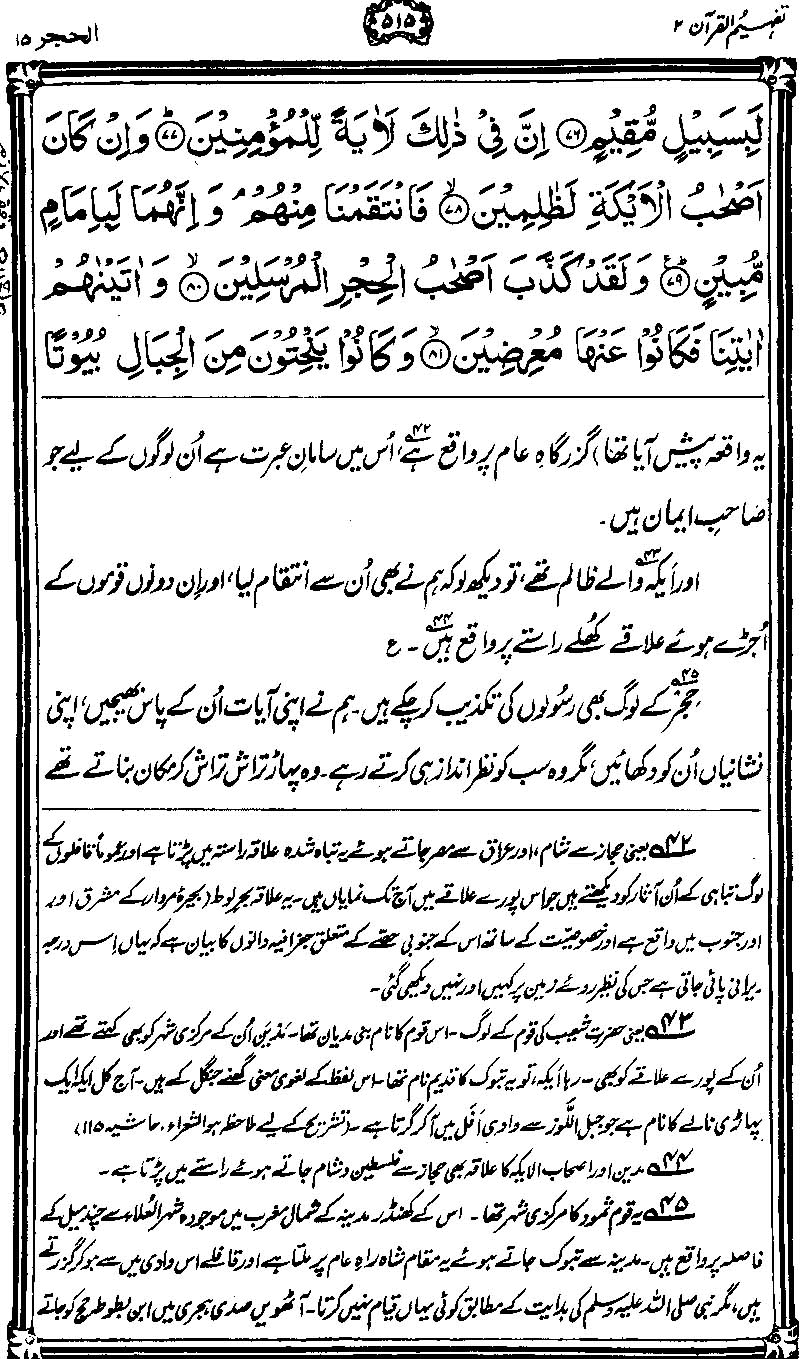 تفہیم القرآن ۲
۵۱۵
الحجر ۱۵
لَبِسَبِيْلٍ مُّقِيْمٍ ﴿۷۶﴾ اِنَّ فِيْ ذٰلِكَ لَاٰيَةً لِّلْمُؤْمِنِيْنَ ﴿۷۷﴾ وَاِنْ كَانَ
اَصْحٰبُ الْاَيْكَةِ لَظٰلِمِيْنَ ﴿۷۸﴾ فَانْتَقَمْنَا مِنْهُمْ وَاِنَّهُمَا لَبِاِمَامٍ
مُّبِيْنٍ ﴿۷۹﴾ وَلَقَدْ كَذَّبَ اَصْحٰبُ الْحِجْرِ الْمُرْسَلِيْنَ ﴿۸۰﴾ وَاٰتَيْنٰهُمْ
اٰيٰتِنَا فَكَانُوْا عَنْهَا مُعْرِضِيْنَ ﴿۸۱﴾ وَكَانُوْا يَنْحِتُوْنَ مِنَ الْجِبَالِ بُيُوْتًا
یہ واقعہ پیش آیا تھا) گزرگاہِ عام پر واقع ہے۴۲، اُس میں سامانِ عبرت ہے اُن لوگوں کے لیے جو
صاحبِ ایمان ہیں۔
اور اَیکہ۴۳ والے ظالم تھے، تو دیکھ لو کہ ہم نے بھی اُن سے انتقام لیا، اور اِن دونوں قوموں کے
اُجڑے ہوئے علاقے کھُلے راستے پر واقع ہیں۴۴۔ ع
حِجْر۴۵ کے لوگ بھی رسُولوں کی تکذیب کر چکے ہیں۔ ہم نے اپنی آیات اُن کے پاس بھیجیں، اپنی
نشانیاں اُن کو دکھائیں، مگر وہ سب کو نظر انداز ہی کرتے رہے۔ وہ پہاڑ تراش تراش کر مکان بناتے تھے
۴۲ یعنی حجاز سے شام، اور عراق سے مصر جاتے ہوئے یہ تباہ شدہ علاقہ راستہ میں پڑتا ہے اور عموماً قافلوں کے
لوگ تباہی کے اُن آثار کو دیکھتے ہیں جو اس پورے علاقے میں آج تک نمایاں ہیں۔ یہ علاقہ بحرِ لوط (بحیرۂ مردار کے مشرق اور
اور جنوب میں واقع ہے اور خصوصیت کے ساتھ اس کے جنوبی حصّے کے متعلق جغرافیہ دانوں کا بیان ہے کہ یہاں اِس درجہ
یرانی پائی جاتی ہے جس کی نظیر روئے زمین پر کہیں اور نہیں دیکھی گئی۔
۴۳ یعنی حضرت شعیب کی قوم کے لوگ۔ اس قوم کا نام بنی مدیان تھا۔ مَدْیَن اُن کے مرکزی شہر کو بھی کہتے تھے اور
اُن کے پورے علاقے کو بھی۔ رہا اَیکہ، تو یہ تبوک کا قدیم نام تھا۔ اس لفظ کے لغوی معنی گھنے جنگل کے ہیں۔ آج کل ایکہ ایک
پہاڑی نالے کا نام ہے جو جبل اللَّوز سے وادی اَفَل میں آ کر گرتا ہے۔ (تشریح کے لیے ملاحظہ ہو الشعراء، حاشیہ ۱۱۵)
۴۴ مدین اور اصحاب الایکہ کا علاقہ بھی حجاز سے فلسطین و شام جاتے ہوئے راستے میں پڑتا ہے۔
۴۵ یہ قوم ثمود کا مرکزی شہر تھا۔ اس کے کھنڈر مدینہ کے شمال مغرب میں موجودہ شہر العُلاء سے چند میل کے
فاصلہ پر واقع ہیں۔ مدینہ سے تبوک جاتے ہوئے یہ مقام شاہ راہِ عام پر ملتا ہے اور قافلے اس وادی میں سے ہو کر گزرتے
ہیں، مگر نبی صلی اللہ علیہ وسلم کی ہدایت کے مطابق کوئی یہاں قیام نہیں کرتا۔ آٹھویں صدی ہجری میں ابن بطوطہ حج کو جاتے